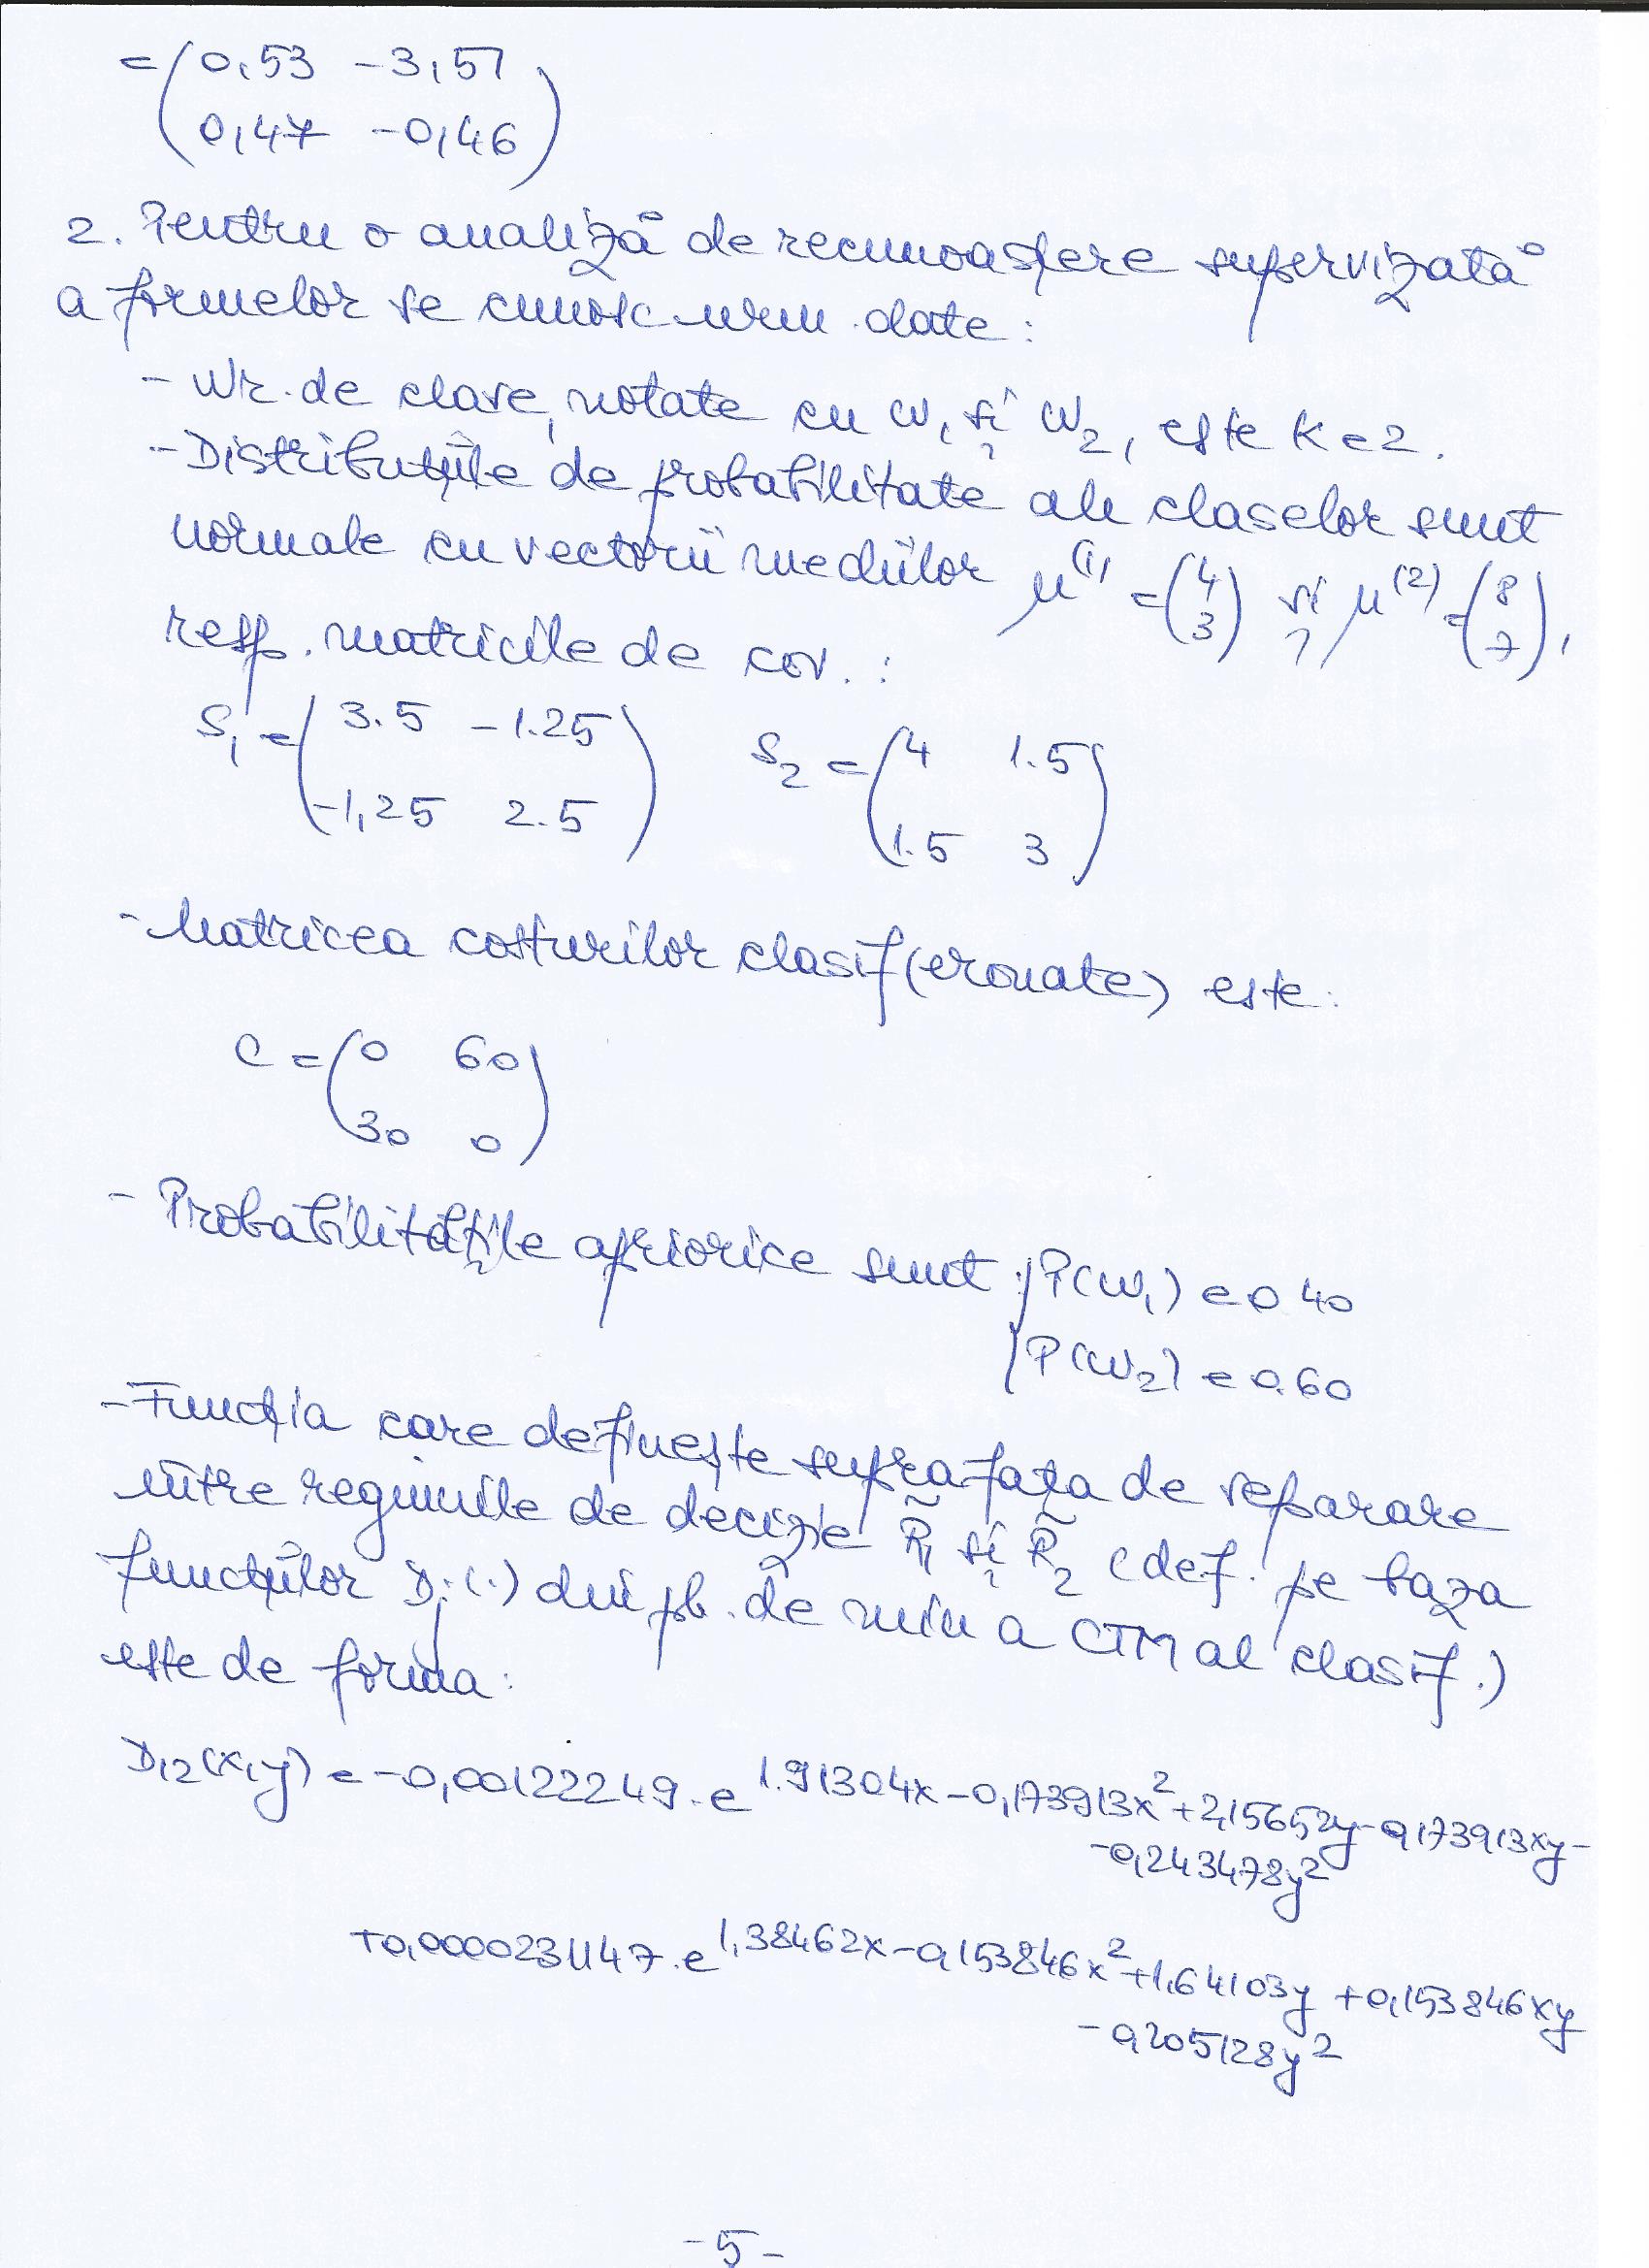 = ( 0,53 -3,57
0,47 -0,46 )
2. Pentru o analiză de recunoaștere supervizată
a formelor se cunosc urm. date:
- Nr. de clase, notate cu W1 și W2, este K = 2.
- Distribuțiile de probabilitate ale claselor sunt
normale cu vectorii mediilor μ(1) = (4 3) și μ(2) = (8 7),
resp. matricile de cov. :
S1 = ( 3.5 -1.25 S2 = ( 4 1.5
-1,25 2.5 ) 1.5 3 )
- Matricea costurilor clasif (eronate) este:
C = ( 0 60
30 0 )
- Probabilitățile apriorice sunt: { P(W1) = 0.40
P(W2) = 0.60
- Funcția care definește suprafața de separare
între regiunile de decizie R̃1 și R̃2 (def. pe baza
funcțiilor Di(.) din pb. de min a CTM al clasif.)
este de forma:
D12(x,y) = -0,00122249. e^1.91304x - 0,173913x² + 2,15652y - 0,173913xy -
- 0,243478y²
+0,0000231147. e^1,38462x - 0,153846x² + 1.64103y + 0,153846xy
- 0,205128y²
- 5 -